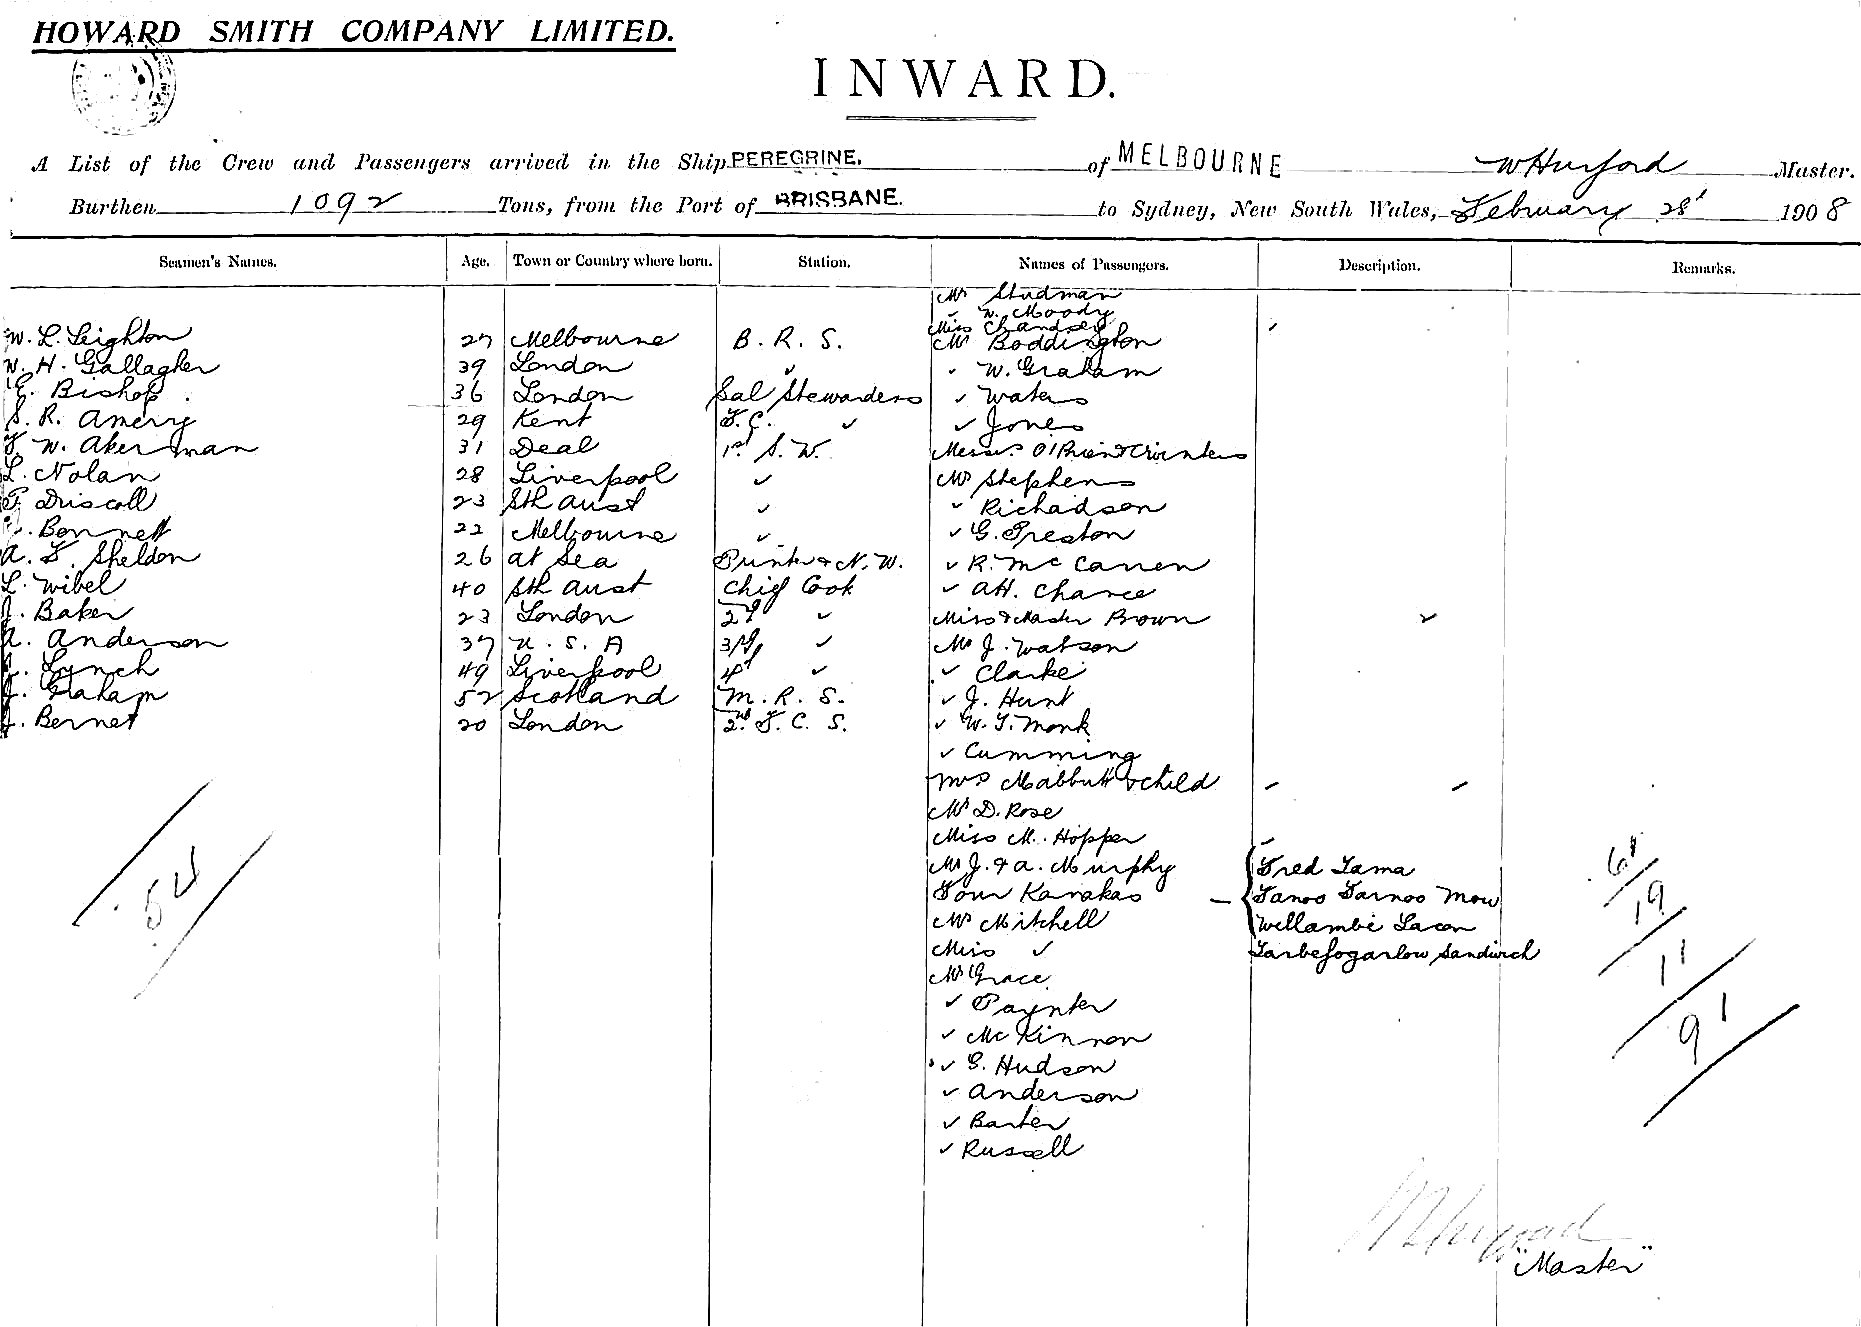 HOWARD SMITH COMPANY LIMITED.
INWARD.
A List of the Crew and Passengers arrived in the Ship PEREGRINE. of MELBOURNE W Hurford Master.
Burthen 1092 Tons, from the Port of BRISBANE. to Sydney, New South Wales, February 28' 1908
Seamen's Names. Age. Town or Country where born. Station. Names of Passengers. Description. Remarks.
Mr Studman
✓ W. Moody
Miss Chandsey
W. L. Leighton 27 Melbourne B. R. S. Mr Boddington
W. H. Gallagher 39 London ✓ ✓ W. Graham
E. Bishop 36 London Sal Stewardess ✓ Waters
S. R. Amery 29 Kent F.C. ✓ ✓ Jones
F. W. Akerman 31 Deal 1st S.W. Messrs O'Brien &
L. Nolan 28 Liverpool ✓ Mr Stephens
Driscoll 23 Sth Aust ✓ ✓ Richadson
Bennett 22 Melbourne ✓ ✓ G. Preston
A. F. Sheldon 26 at Sea Printer & N.W. ✓ R. McCarren
L. Wibel 40 Sth Aust Chief Cook ✓ AH. Chance
J. Baker 23 London 2d ✓ Miss & Master Brown
A. Anderson 37 U. S. A 3rd ✓ Mr J. Watson
J. Lynch 49 Liverpool 4th ✓ ✓ Clarke
J. Graham 52 Scotland M. R. S. ✓ J. Hunt
J. Bernet 20 London 2nd F. C. S. ✓ W. T. Monk
✓ Cumming
Mrs Mabbutt & child
Mr D. Rose
Miss M. Hopper
Mr J. & A. Murphy Fred Tama
Four Kanakas Tanoo Tarnoo Mow
Mr Mitchell Willambie Lacon
Miss ✓ Tarbefogarlow Sandwich
Mr Grace
✓ Paynter
✓ McKinnon
✓ G. Hudson
✓ Anderson
✓ Barter
✓ Russell
54
61
19
11
91
"Master"